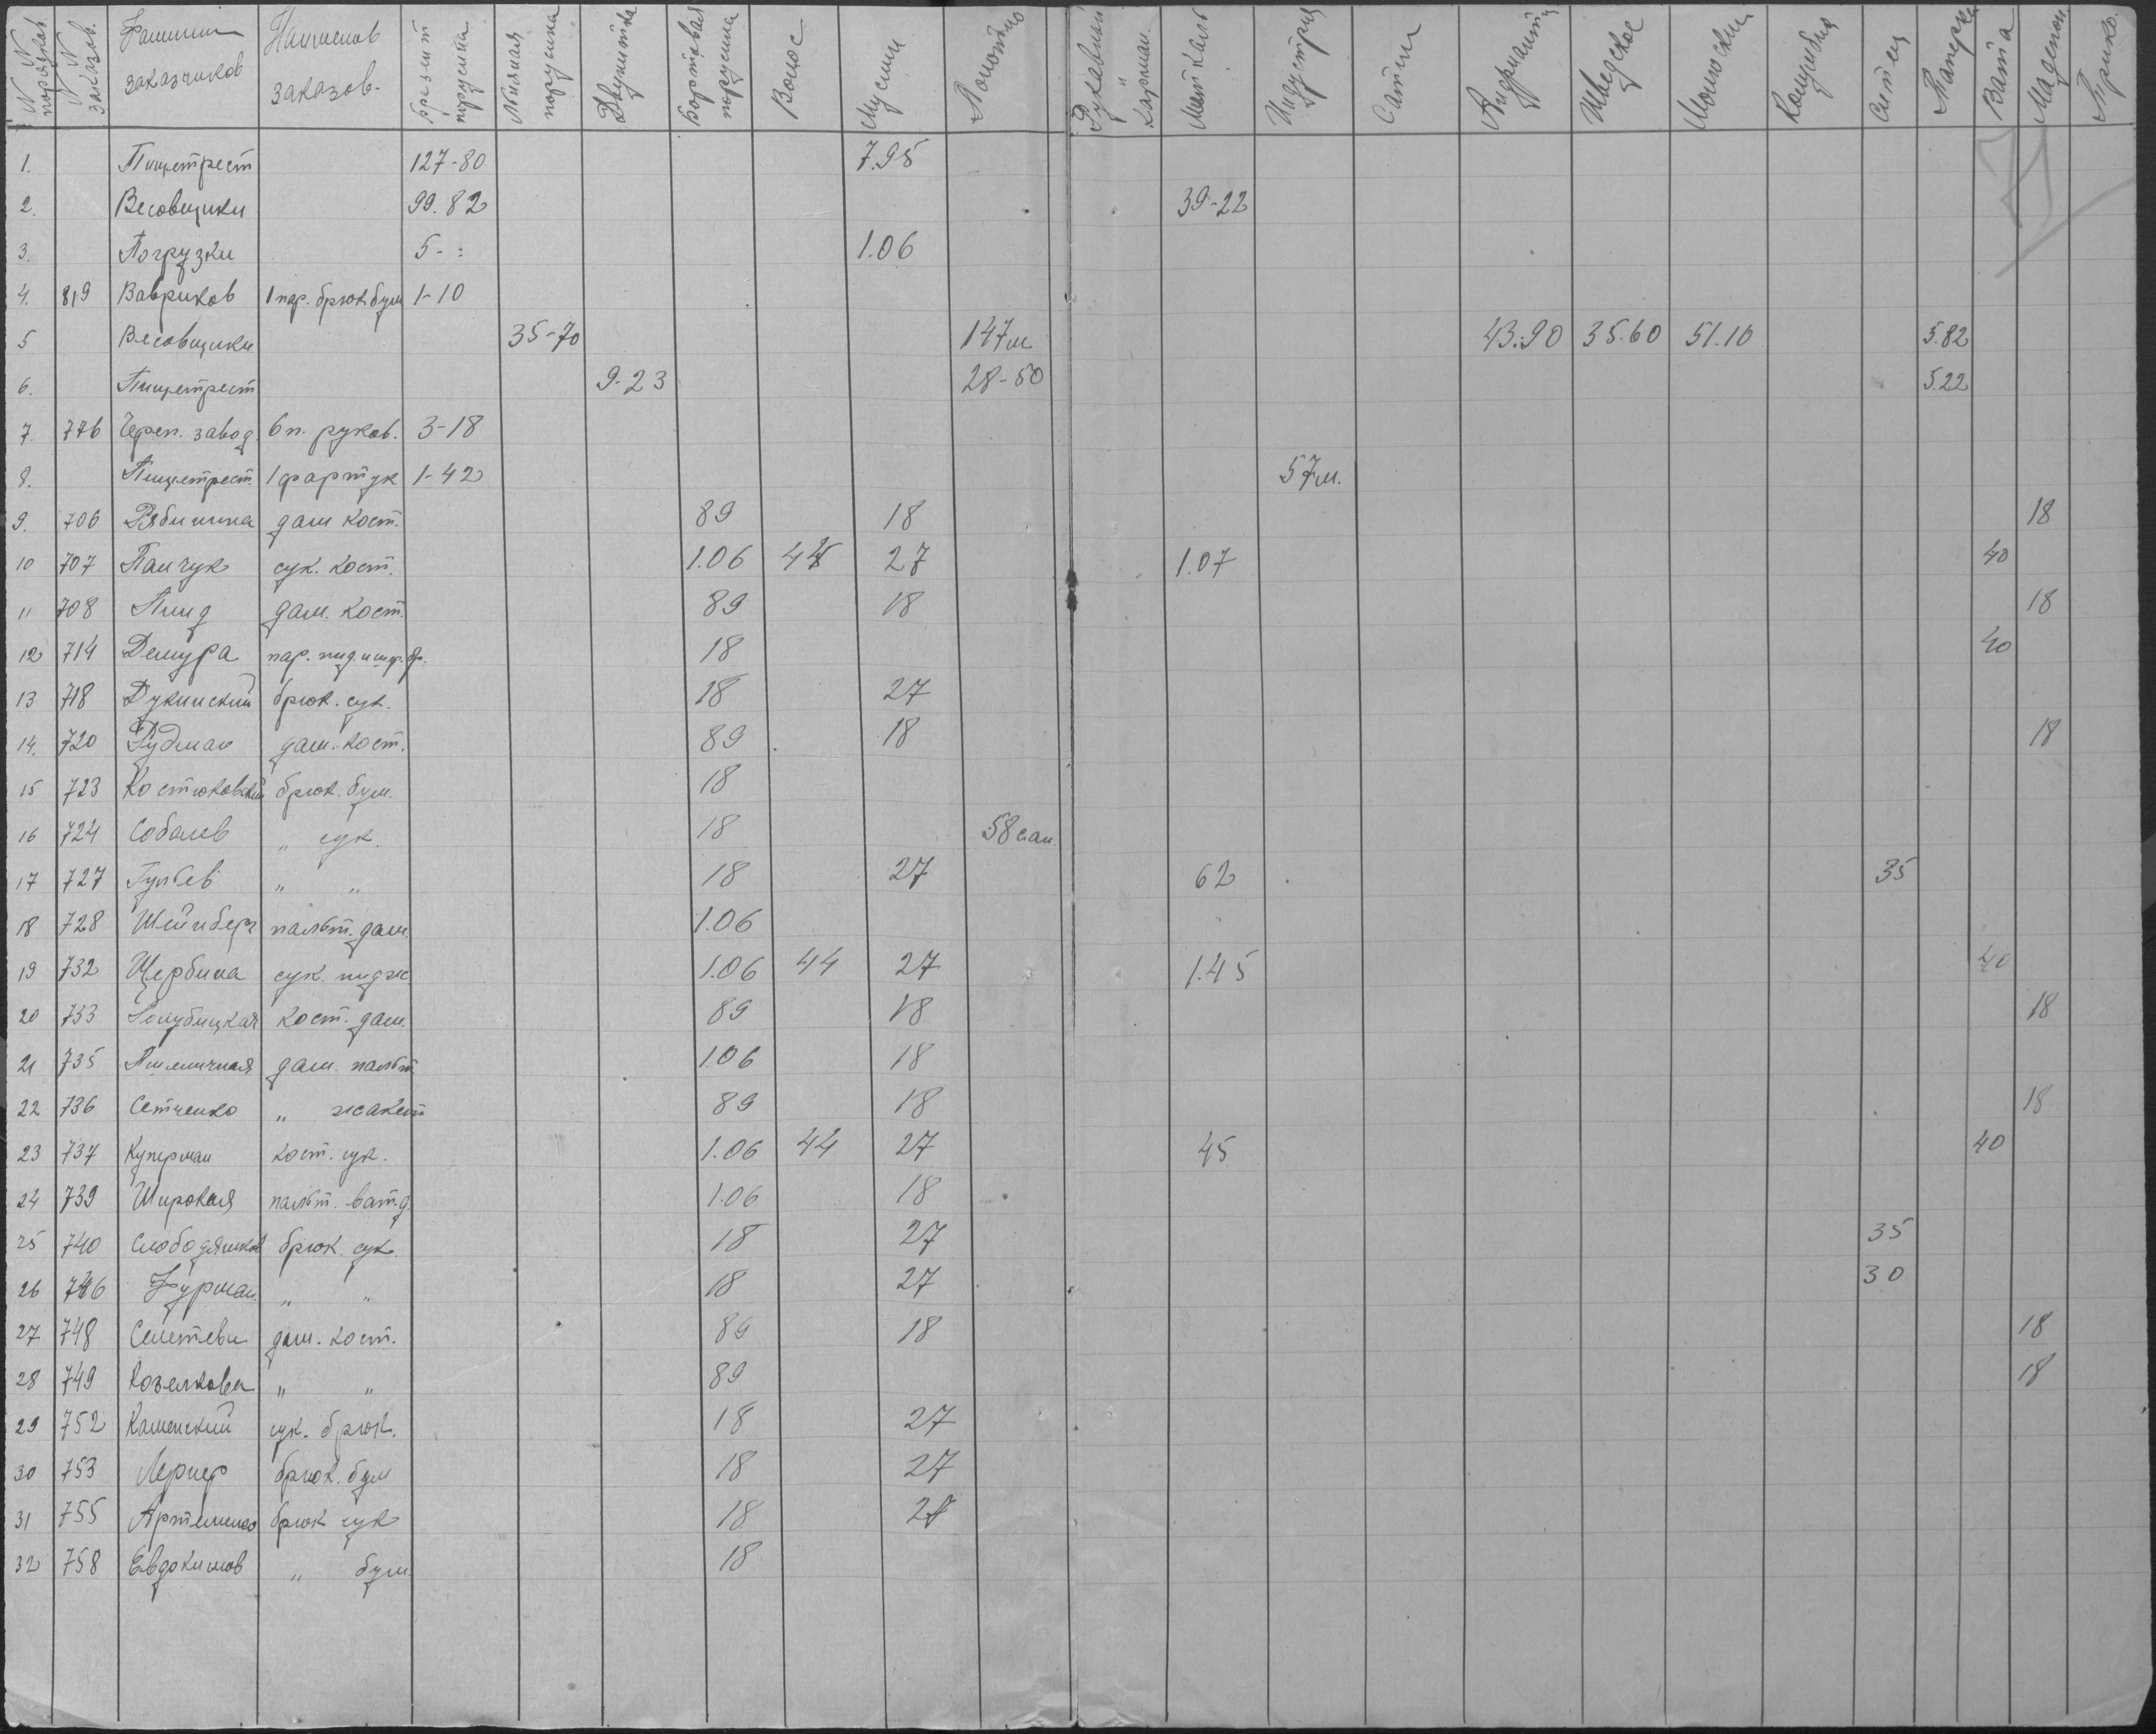 № № порядков. № № заказов. Фамилии заказчиков Наименов заказов. Брезент парусина Льняная парусина Двунитка Бортовая парусина Волос Муслин Полотно Рукавный " Карман. Миткаль Индустрия Сатин Шведское Коленкор Ситец Вата Мадепол. Трико.
1. Пищетрест 127-80 7.95
2. Весовщики 99.82 39-22
3. Погрузки 5-: 1.06
4. 819 Вавриков 1 пар. брюк бум 1-10
5 Весовщики 35-70 147м 43.90 35.60 51.10 5.82
6. Пищетрест 9-23 28-50 5.22
7. 776 Череп. завод. 6 п. руков. 3-18
8. Пищетрест 1 фартук 1-42 57м.
9. 706 Рябинина дам кост. 89 18 18
10 707 Панчук сук. кост. 1.06 44 27 1.07 40
11 708 Линд дам. кост. 89 18 18
12 714 Демура пар. пид. и шер. бр. 18 40
13 718 Дукинский брюк. сук. 18 27
14. 720 Рудман дам. кост. 89 18 18
15 723 Костюковский брюк. бум. 18
16 724 Соболев " сук. 18 58 сан.
17 727 Гулбев " " 18 27 62 35
18 728 Шейнберг пальт. дам. 1.06
19 732 Щербина сук. пидж 1.06 44 27 1.45 40
20 733 Голубицкая кост. дам. 89 18 18
21 735 Пшеничная дам. пальт. 1.06 18
22 736 Сетченко " жакет 89 18 18
23 737 Куперман кост. сук. 1.06 44 27 45 40
24 739 Широкая пальт. ват. д. 1.06 18
25 740 Слободяников брюк. сук. 18 27 35
26 746 Фурман. " " 18 27 30
27 748 дам. кост. 89 18 18
28 749 Козелкова " " 89 18
29 752 Каменский сук. брюк. 18 27
30 753 Лернер брюк. бум 18 27
31 755 Артеменко брюк сук 18 27
32 758 Евдокимов " бум. 18